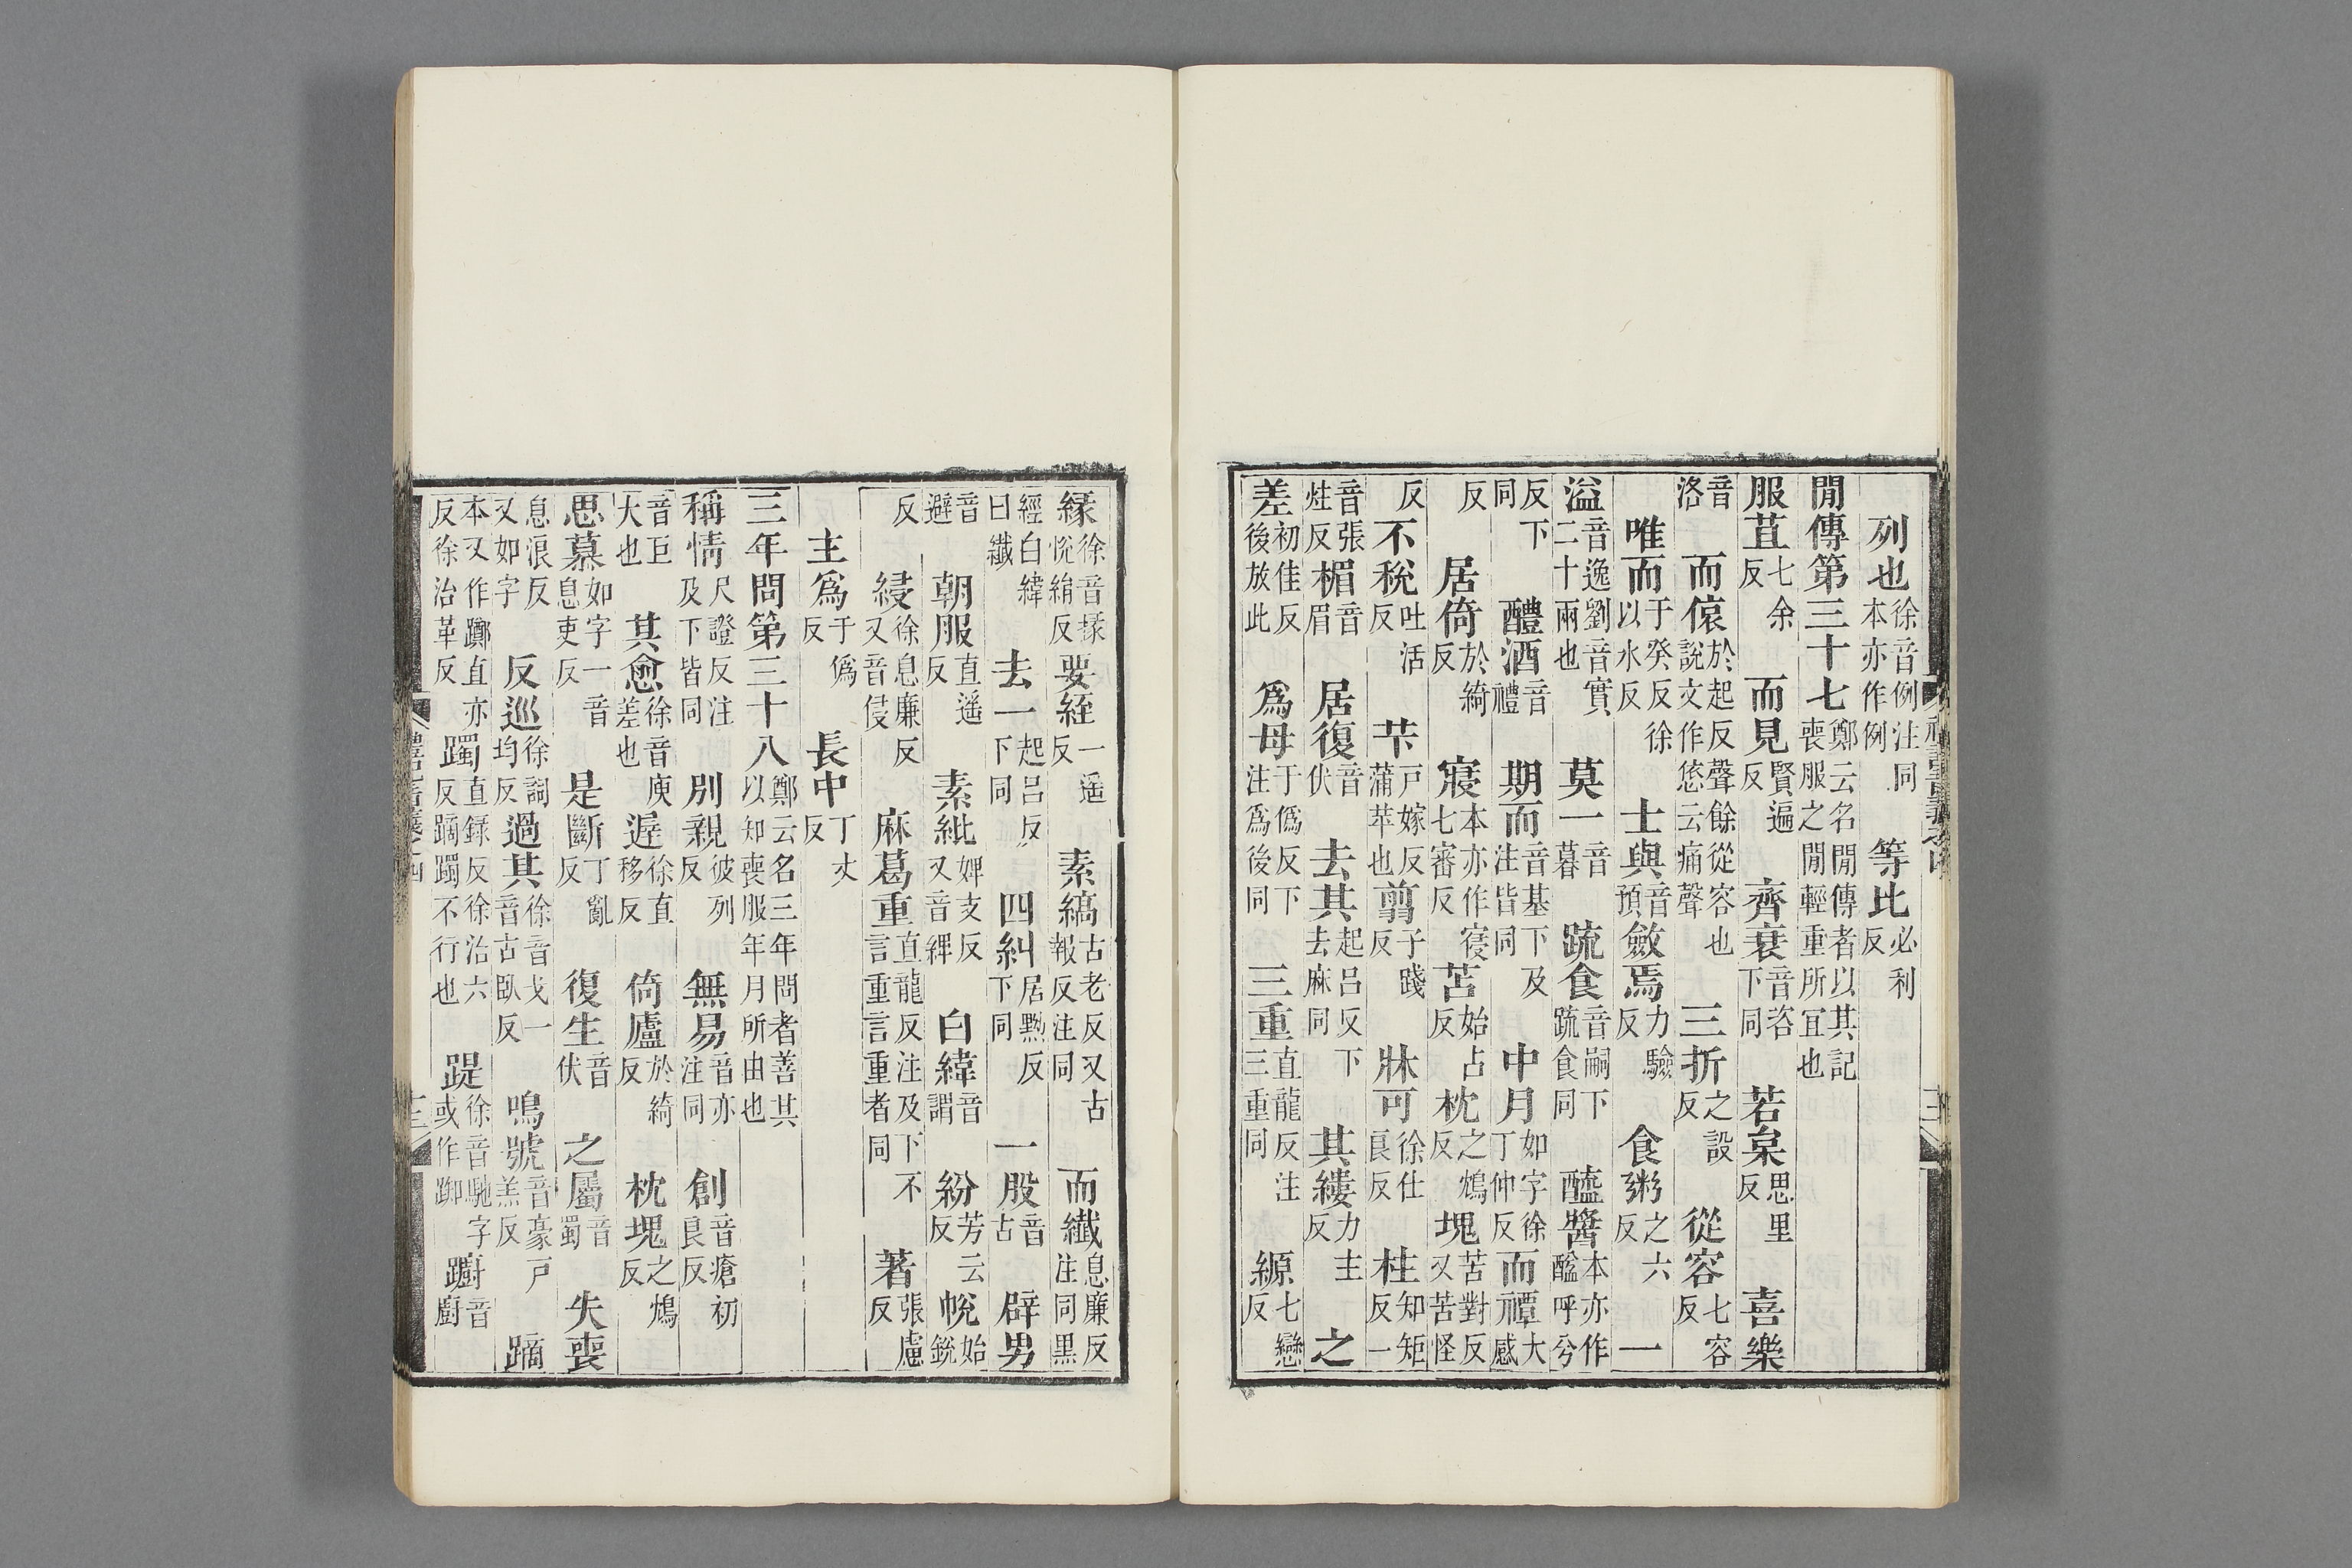 列也徐音例注同本亦作例等比必利反
閒傳第三十七鄭云名閒傳者以其記喪服之閒輕重所宜也
服苴七余反而見賢遍反齊衰音咨下同若枲思里反喜樂
音洛而偯於起反聲餘從容也說文作㥋云痛聲三折之設反從容七容反
唯而于癸反徐以水反士與音預斂焉力驗反食粥之六反一
溢音逸劉音實二十兩也莫一音暮疏食音嗣下疏食同醯醬本亦作醯呼兮
反下同醴酒音禮期而音基下及注皆同中月如字徐丁仲反而禫大感
反居倚於綺反寢本亦作寑七審反苫始占反枕之鴆反塊苦對反又苦怪
反不稅吐活反苄戶嫁反蒲苹也翦子踐反牀可徐仕良反柱知矩反一
音張炷反楣音眉居復音伏去其起呂反下去麻同其縷力主反之
差初佳反後放此爲母于僞反下注爲後同三重直龍反注三重同縓七戀反
緣徐音掾悅絹反要絰一遥反素縞古老反又古報反注同而纖息廉反注同黑
經白緯曰纖去一起呂反下同四糾居黝反下同一股音古辟男
音避朝服直遥反素紕婢支反又音紕白緯音謂紛芳云反帨始銳
反綅徐息廉反又音侵麻葛重直龍反注及下不言重言重者同著張慮反
主爲于僞反長中丁丈反
三年問第三十八鄭云名三年問者善其以知喪服年月所由也
稱情尺證反注及下皆同別親彼列反無易音亦注同創音瘡初良反
音巨大也其愈徐音庾差也遲徐直移反倚廬於綺反枕塊之鴆反
思慕如字一音息吏反是斷丁亂反復生音伏之屬音蜀失喪
息浪反又如字反巡徐詞均反過其徐音戈一音古臥反鳴號音豪戶羔反蹢
本又作躑直亦反徐治革反躅直録反徐治六反蹢躅不行也踶徐音馳字或作踟躕音廚